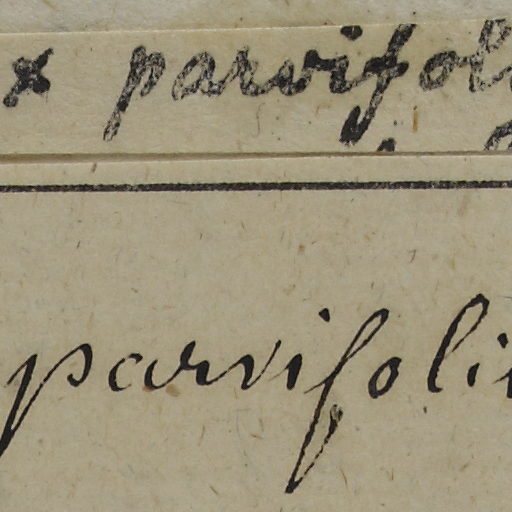 x parvifol
parvifoli